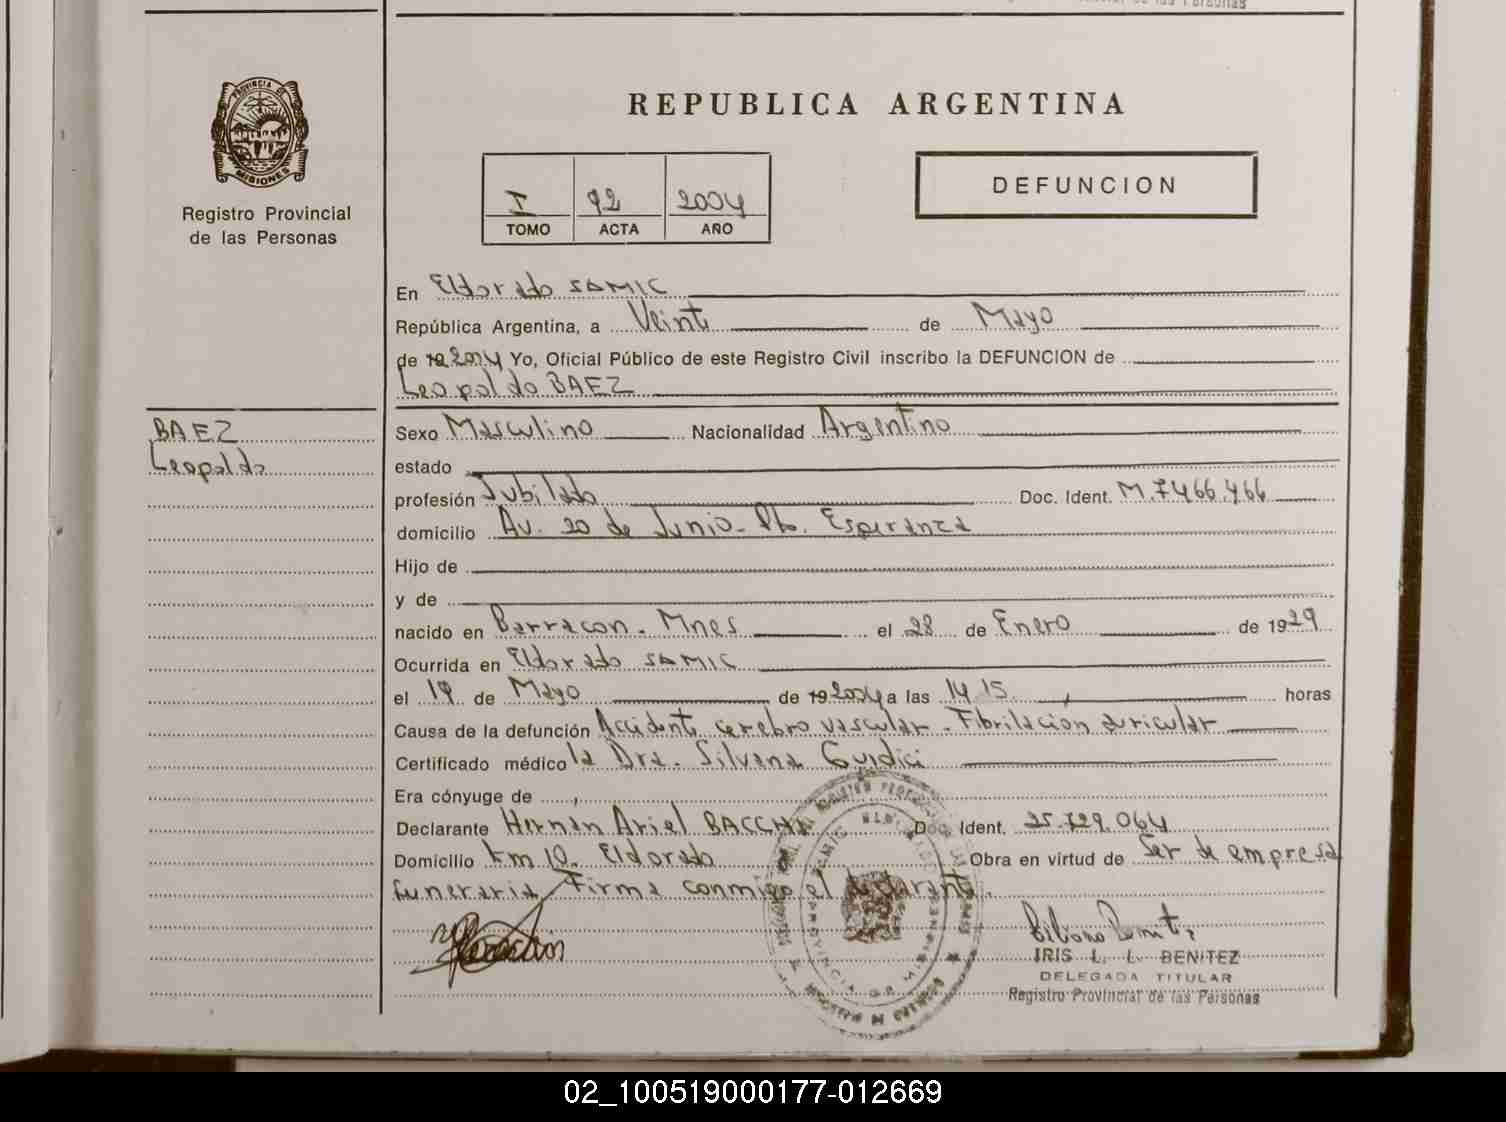 PROVINCIA DE
MISIONES
Registro Provincial
de las Personas
REPUBLICA ARGENTINA
I 92 2004
TOMO ACTA AÑO
DEFUNCION
En Eldorado SAMIC
República Argentina, a Veinte de Mayo
de 19 2004 Yo, Oficial Público de este Registro Civil inscribo la DEFUNCION de
Leopoldo BAEZ
BAEZ
Leopoldo
Sexo Masculino Nacionalidad Argentino
estado
profesión Jubilado Doc. Ident. M.7466.466
domicilio Av. 20 de Junio- Pto. Esperanza
Hijo de
y de
nacido en Barracon- Mnes el 28 de Enero de 1929
Ocurrida en Eldorado SAMIC
el 19 de Mayo de 19 2004 a las 14 15 horas
Causa de la defunción Accidente cerebro vascular- Fibrilacion auricular
Certificado médico la Dra. Silvana Guidici
Era cónyuge de
Declarante Hernan Ariel BACCHI Doc. Ident. 25.729.064
Domicilio km 10. Eldorado Obra en virtud de Ser de empresa
funeraria, Firma conmigo el declarante.
IRIS L. L. BENITEZ
DELEGADA TITULAR
Registro Provincial de las Personas
02_100519000177-012669